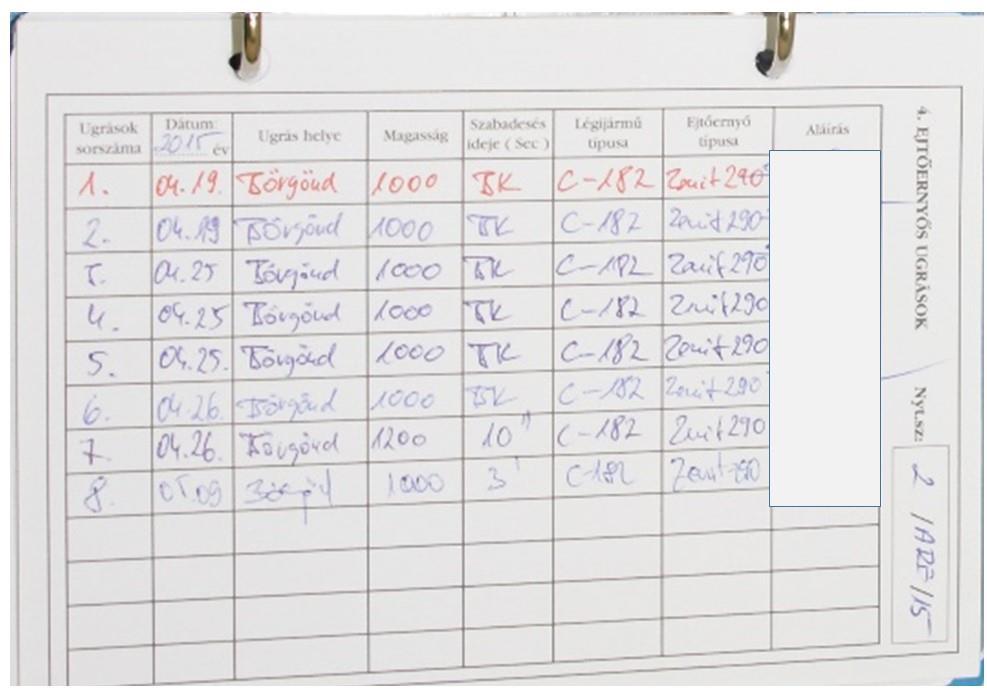 Ugrások sorszáma Dátum: 2015 év Ugrás helye Magasság Szabadesés ideje ( Sec ) Légijármű típusa Ejtőernyő típusa Aláírás
1. 04.19. Börgönd 1000 BK C-182 Zenit 290
2. 04.19 Börgönd 1000 BK C-182 Zenit 290
04.25 Börgönd 1000 BK C-182 Zenit 290
4. 04.25 Börgönd 1000 BK C-182 Zenit 290
5. 04.25. Börgönd 1000 BK C-182 Zenit 290
6. 04.26. Börgönd 1000 BK C-182 Zenit 290
7. 04.26. Börgönd 1200 10" C-182 Zenit 290
8. 05.09 1000 3' C-182 Zenit-290
4. EJTŐERNYŐS UGRÁSOK Nyt.sz: 2 / /15